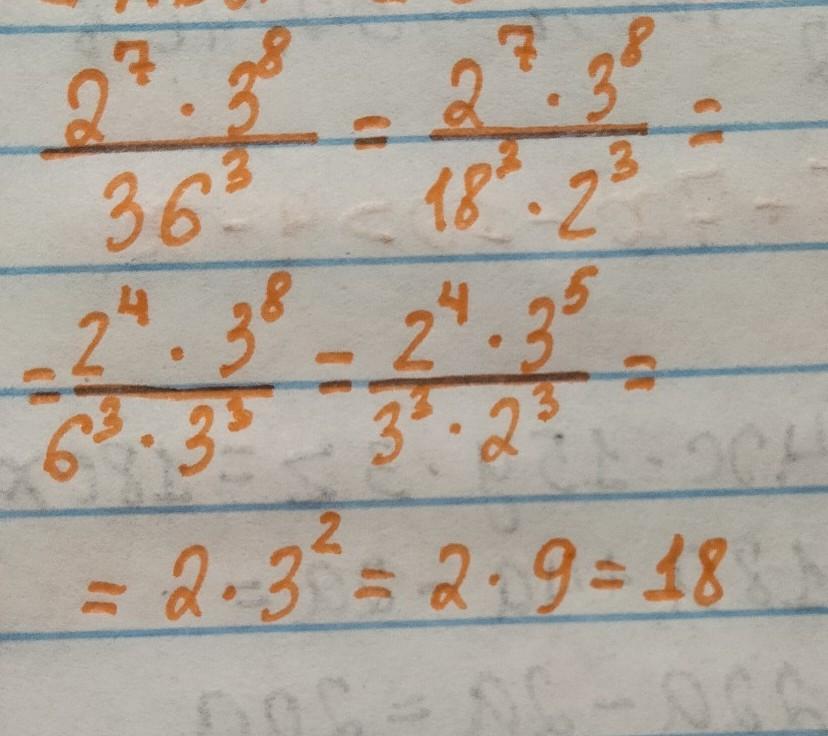 2⁷ · 3⁸ / 36³ = 2⁷ · 3⁸ / 18³ · 2³ =
= 2⁴ · 3⁸ / 6³ · 3³ = 2⁴ · 3⁵ / 3³ · 2³ =
= 2 · 3² = 2 · 9 = 18